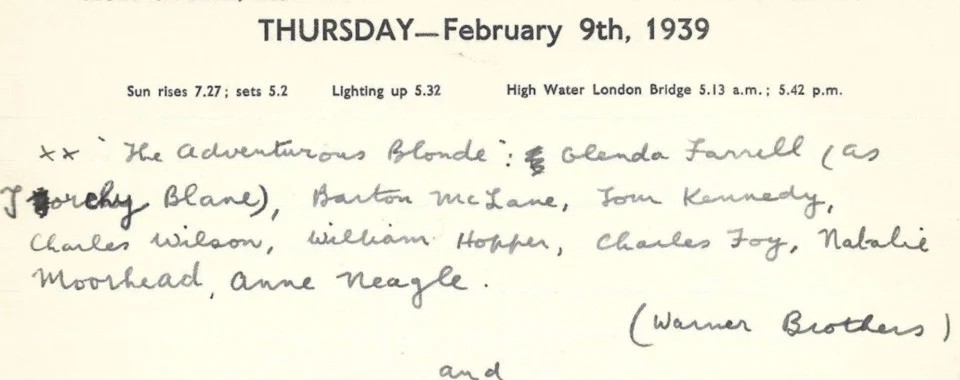 THURSDAY—February 9th, 1939
Sun rises 7.27; sets 5.2 Lighting up 5.32 High Water London Bridge 5.13 a.m.; 5.42 p.m.
xx "The Adventurous Blonde": Glenda Farrell (as
Torchy Blane), Barton McLane, Tom Kennedy,
Charles Wilson, William Hopper, Charles Foy, Natalie
Moorhead, Anne Neagle.
(Warner Brothers)
and